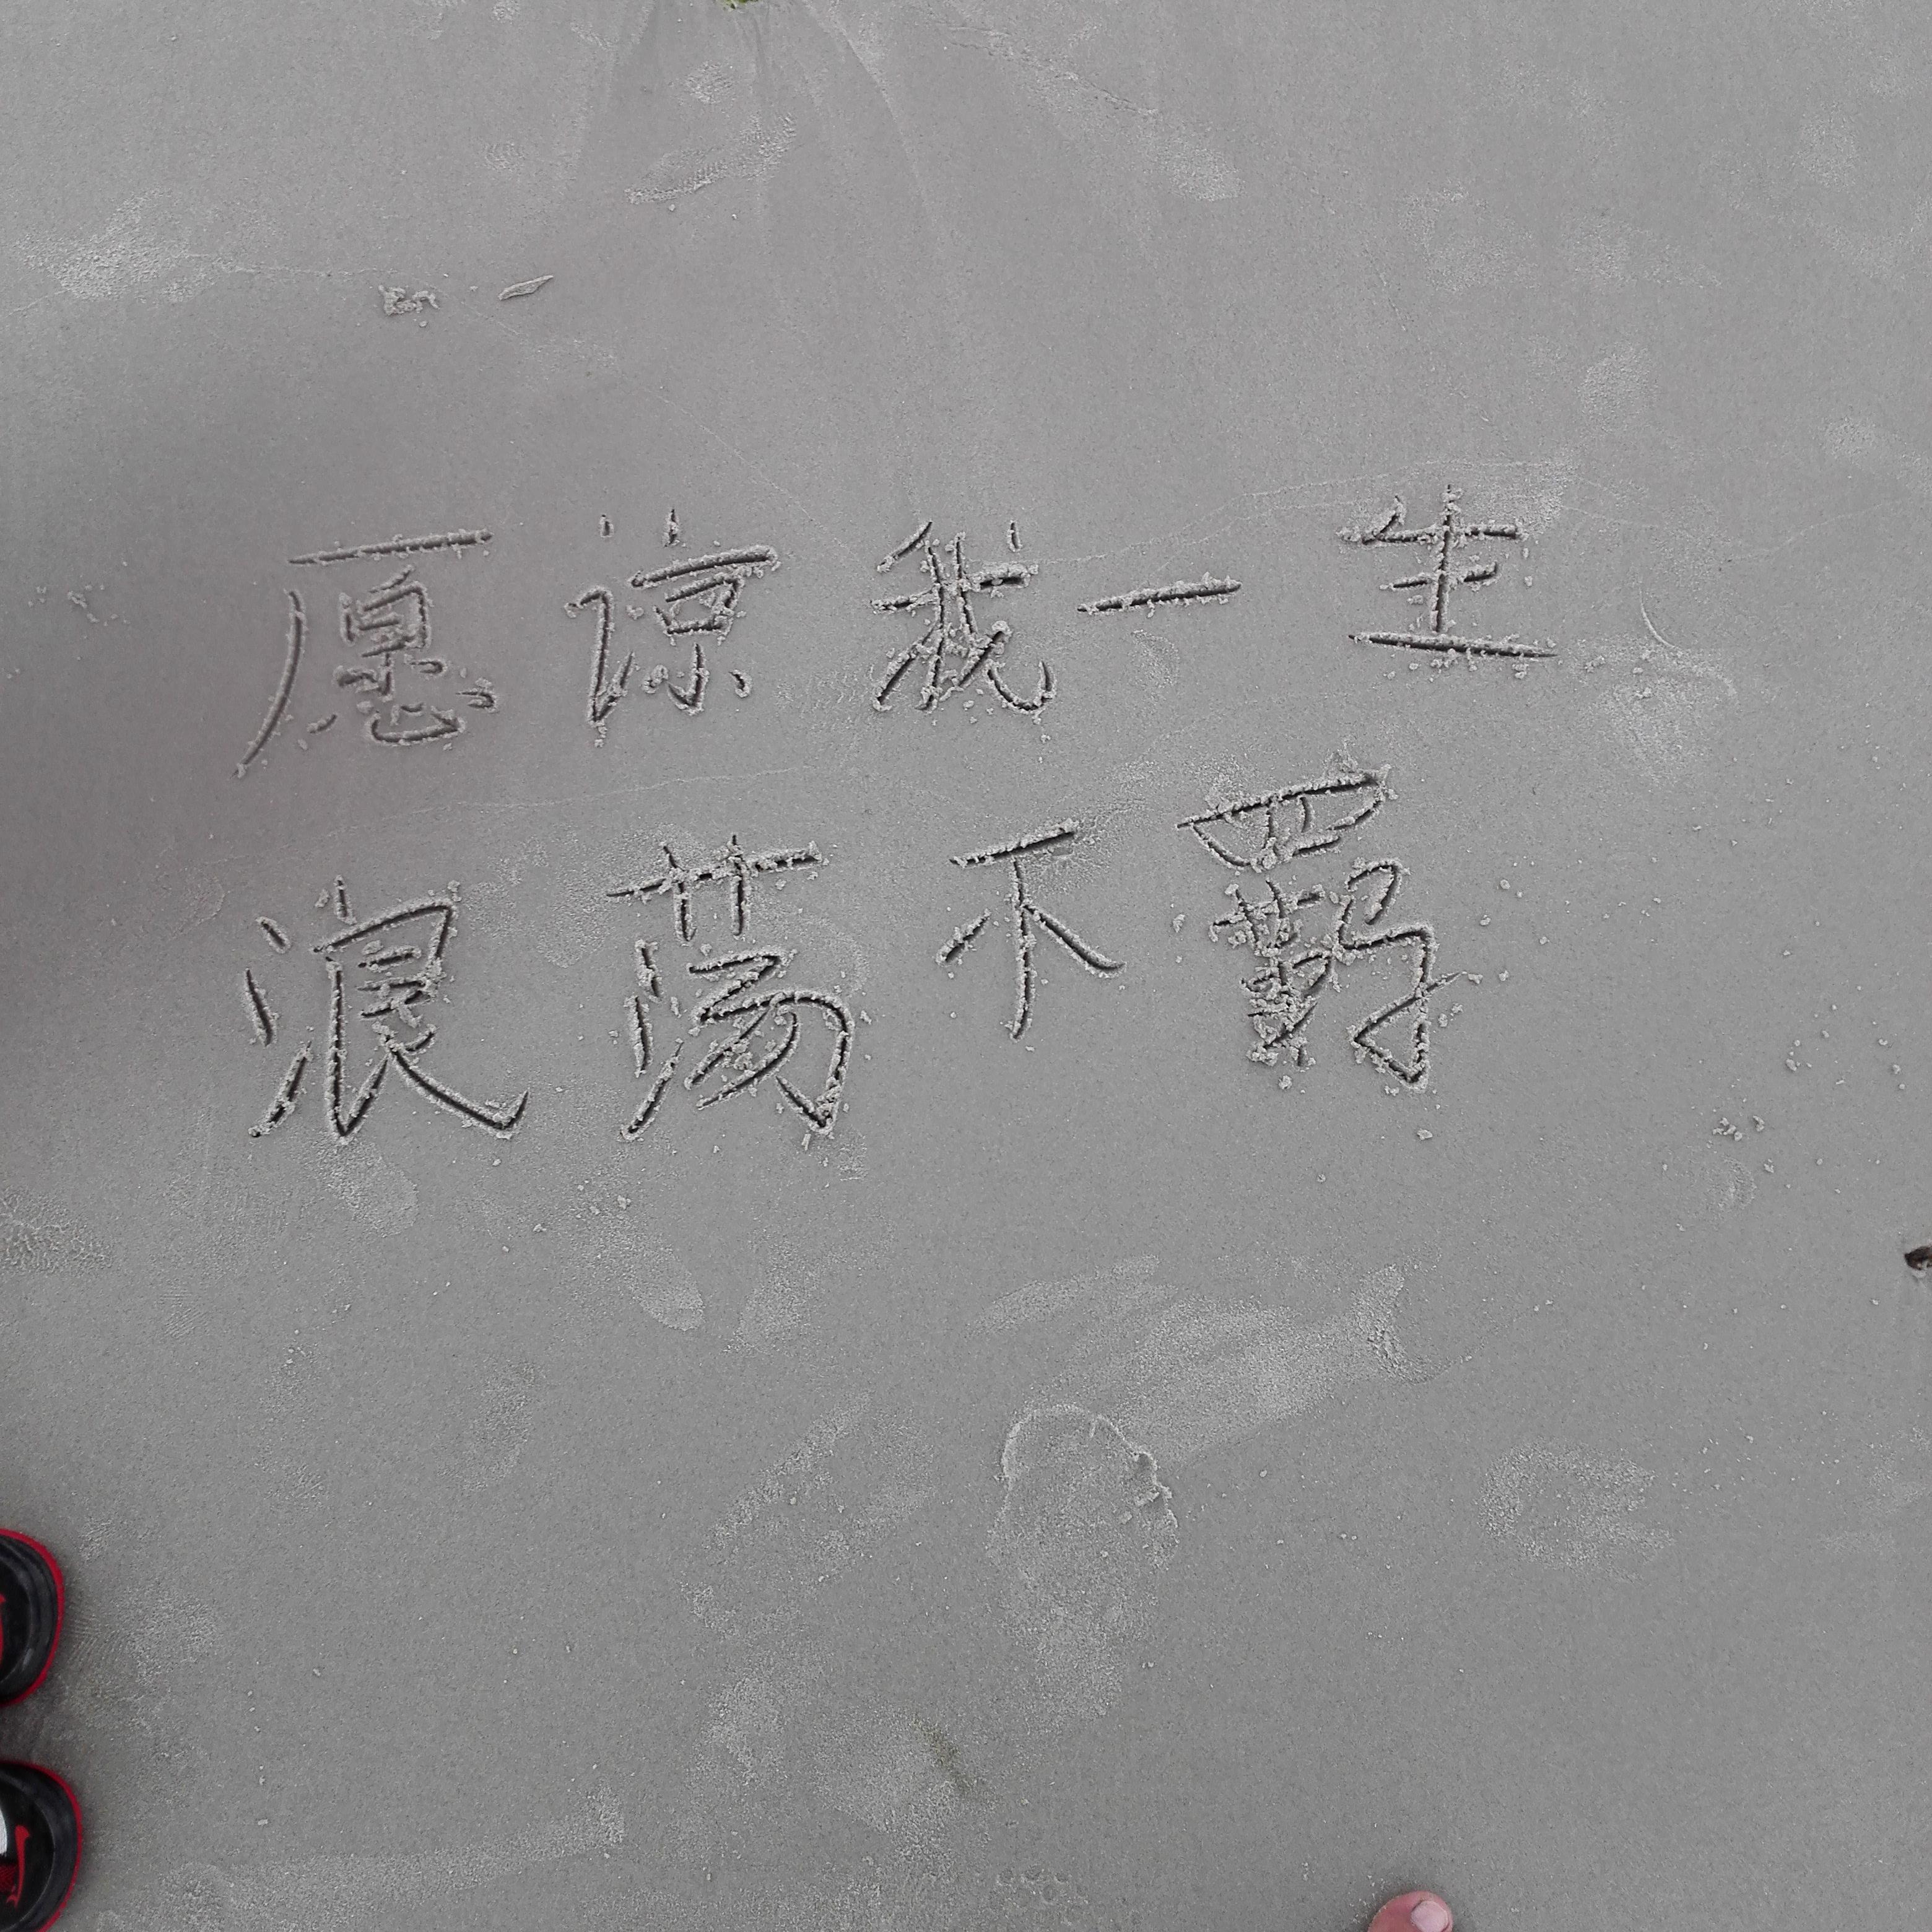 愿谅我一生
浪荡不羁